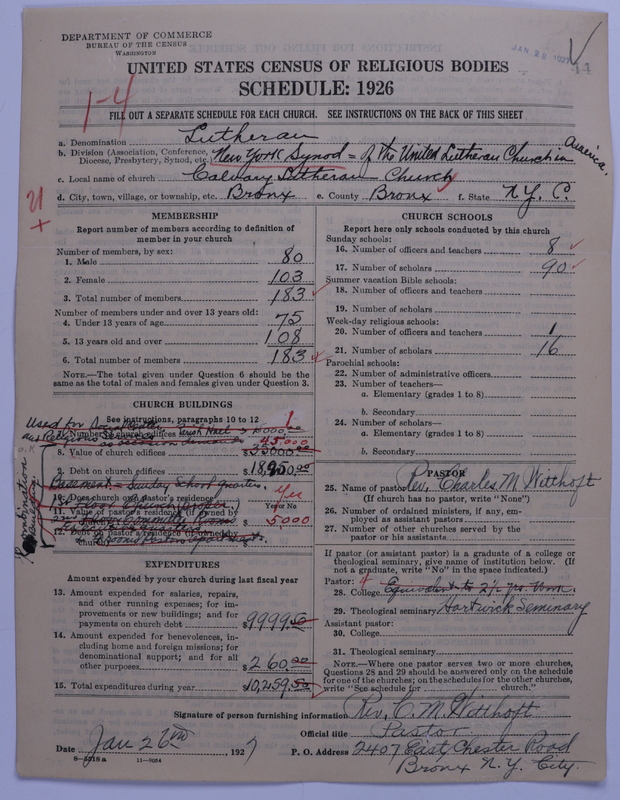 DEPARTMENT OF COMMERCE
BUREAU OF THE CENSUS
WASHINGTON
JAN 28 1927
UNITED STATES CENSUS OF RELIGIOUS BODIES
SCHEDULE: 1926
1-4
FILL OUT A SEPARATE SCHEDULE FOR EACH CHURCH. SEE INSTRUCTIONS ON THE BACK OF THIS SHEET
a. Denomination Lutheran
b. Division (Association, Conference, Diocese, Presbytery, Synod, etc.) New York Synod = of the United Lutheran Church in America.
c. Local name of church Calvary Lutheran Church
d. City, town, village, or township, etc. Bronx e. County Bronx f. State N.Y. C.
MEMBERSHIP
Report number of members according to definition of
member in your church
Number of members, by sex:
1. Male 80
2. Female 103
3. Total number of members 183
Number of members under and over 13 years old:
4. Under 13 years of age 75
5. 13 years old and over 108
6. Total number of members 183
NOTE.—The total given under Question 6 should be the
same as the total of males and females given under Question 3.
CHURCH BUILDINGS
See instructions, paragraphs 10 to 12
Used for
7. Number of church edifices 1
8. Value of church edifices 45000
9. Debt on church edifices 18,950.00
Basement - Sunday School quarters.
10. Does church own a pastor's residence? Yes
Yes or No
11. Value of pastor's residence (if owned by church) $5000
12. Debt on pastor's residence (if owned by church)
EXPENDITURES
Amount expended by your church during last fiscal year
13. Amount expended for salaries, repairs,
and other running expenses; for im-
provements or new buildings; and for
payments on church debt $9999.50
14. Amount expended for benevolences, in-
cluding home and foreign missions; for
denominational support; and for all
other purposes $260.00
15. Total expenditures during year $10,259.50
CHURCH SCHOOLS
Report here only schools conducted by this church
Sunday schools:
16. Number of officers and teachers 8
17. Number of scholars 90
Summer vacation Bible schools:
18. Number of officers and teachers
19. Number of scholars
Week-day religious schools:
20. Number of officers and teachers 1
21. Number of scholars 16
Parochial schools:
22. Number of administrative officers
23. Number of teachers—
a. Elementary (grades 1 to 8)
b. Secondary
24. Number of scholars—
a. Elementary (grades 1 to 8)
b. Secondary
PASTOR
25. Name of pastor Rev. Charles M Witthoft
(If church has no pastor, write "None")
26. Number of ordained ministers, if any, em-
ployed as assistant pastors
27. Number of other churches served by the
pastor or his assistants
If pastor (or assistant pastor) is a graduate of a college or
theological seminary, give name of institution below. (If
not a graduate, write "No" in the space indicated.)
Pastor:
28. College Equivalent to 2½ yrs. Work.
29. Theological seminary Hartwick Seminary
Assistant pastor:
30. College
31. Theological seminary
NOTE.—Where one pastor serves two or more churches,
Questions 28 and 29 should be answered only on the schedule
for one of the churches; on the schedules for the other churches,
write "See schedule for church."
Signature of person furnishing information Rev. C. M. Witthoft
Official title Pastor
Date Jan 26th, 1927
P. O. Address 2407 East Chester Road
Bronx N.Y. City.
8-5518a 11-9054